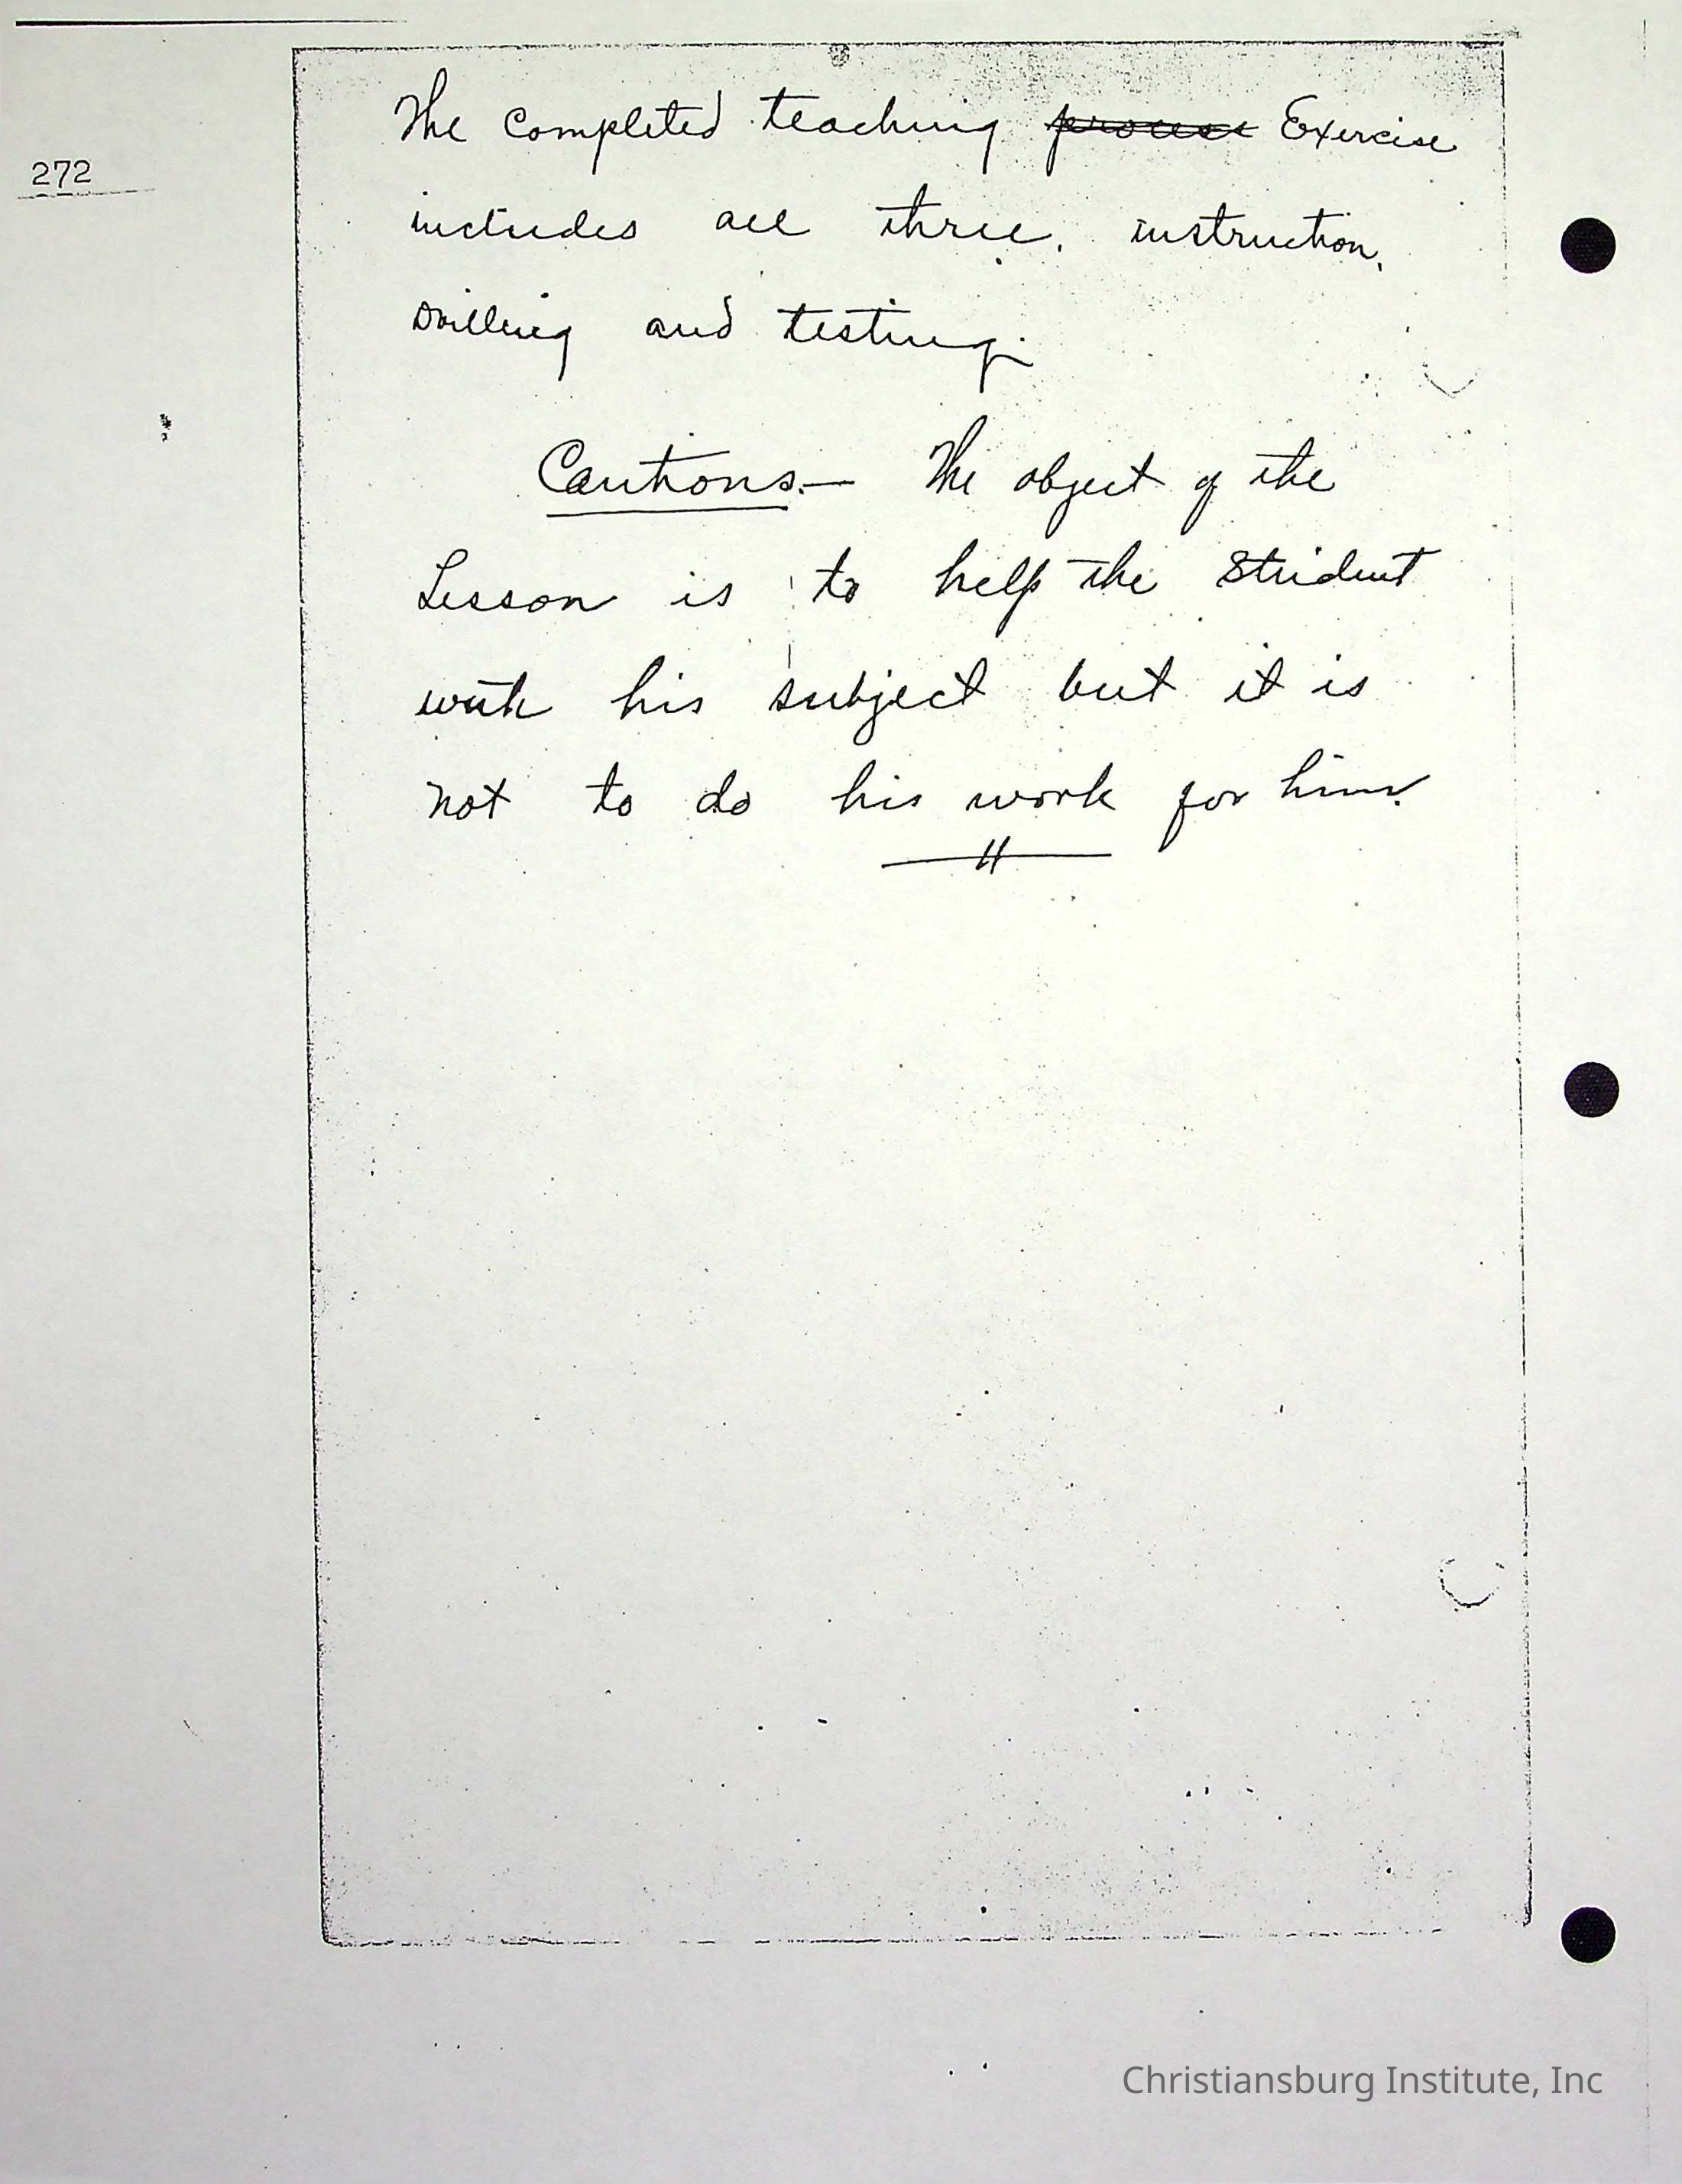 The completed teaching process Exercise
272
includes all three, instruction,
Drilling and testing.
Cautions.— The object of the
Lesson is to help the Student
with his subject but it is
not to do his work for him.
Christiansburg Institute, Inc